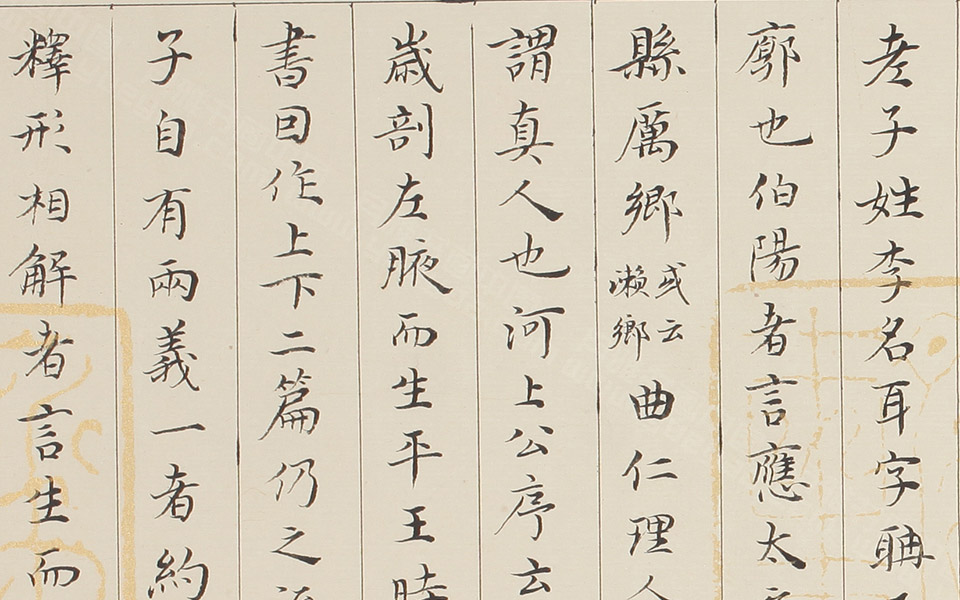 老子姓李名耳字聃
廓也伯陽者言應太
縣厲鄉或云瀨鄉曲仁理人
謂真人也河上公序云
歲剖左腋而生平王時
書回作上下二篇仍之
子自有兩義一者約
釋形相解者言生而